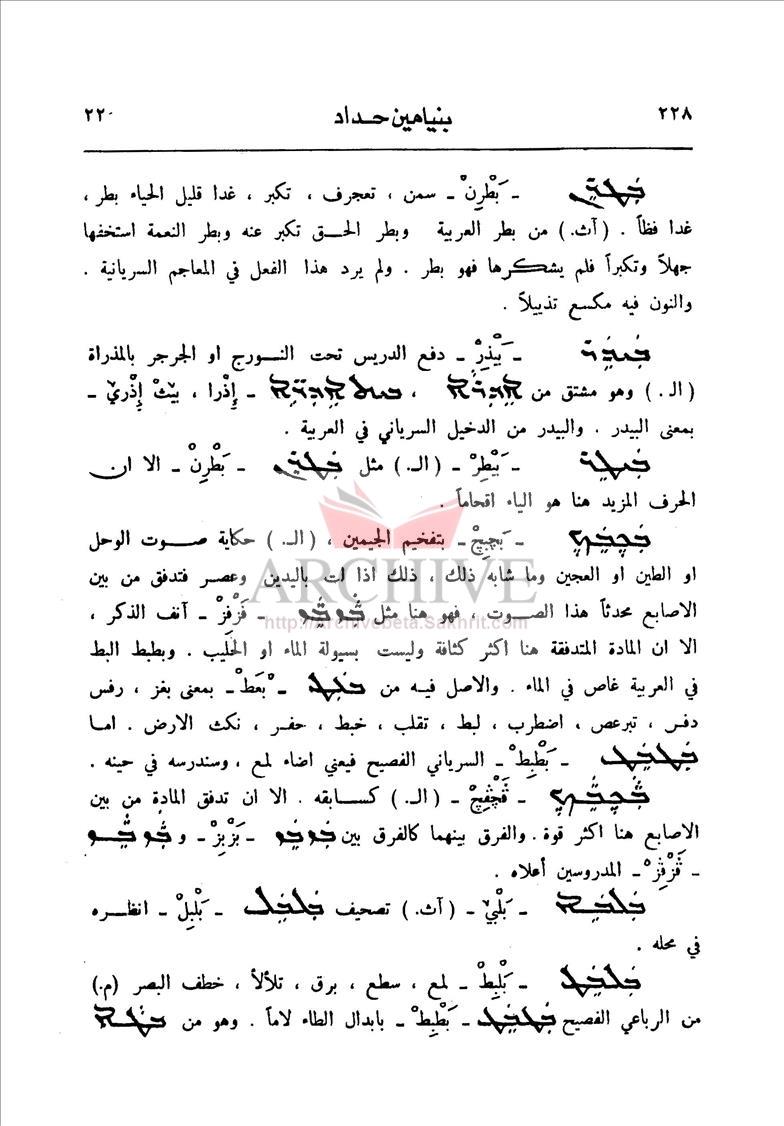 ٢٢٨ بنيامين حداد ٢٢٠
ܒܲܛܪܸܢ ـ بَطْرِنْ ـ سمن ، تعجرف ، تكبر ، غدا قليل الحياء بطر ،
غدا فظاً . (آث.) من بطر العربية وبطر الحق تكبر عنه وبطر النعمة استخفها
جهلاً وتكبراً فلم يشكرها فهو بطر . ولم يرد هذا الفعل في المعاجم السريانية .
والنون فيه مكسع تذييلاً .
ܒܲܝܕܸܪ ـ بَيْذِرْ ـ دفع الدريس تحت النورج او الجرجر بالمذراة
(الـ .) وهو مشتق من ܐܸܕܪܵܐ ، ܒܝܬ ܐܸܕܪܹܐ ـ إِذْرا ، بيْثْ إِذْريْ ـ
بمعنى البيدر . والبيدر من الدخيل السرياني في العربية .
ܒܲܝܛܸܪ ـ بَيْطِرْ ـ (الـ .) مثل ܒܲܛܪܸܢ ـ بَطْرِنْ ـ الا ان
الحرف المزيد هنا هو الياء اقحاماً .
ـ بَجبِجْ ـ بتفخيم الجيمين ، (الـ .) حكاية صوت الوحل
او الطين او العجين وما شابه ذلك ، ذلك اذا لت باليدين وعصر فتدفق من بين
الاصابع محدثاً هذا الصوت ، فهو هنا مثل ـ فَزْفِزْ ـ آنف الذكر ،
الا ان المادة المتدفقة هنا اكثر كثافة وليست بسيولة الماء او الحليب . وبطبط البط
في العربية غاص في الماء . والاصل فيه من ܒܥܛ ـ بْعَط ـ بمعنى بغز ، رفس
دفر ، تبرعص ، اضطرب ، لبط ، تقلب ، خبط ، حفر ، نكث الارض . اما
ܒܲܛܒܸܛ ـ بَطْبِطْ ـ السرياني الفصيح فيعني اضاء لمع ، وسندرسه في حينه .
ـ (الـ .) كسابقه . الا ان تدفق المادة من بين
الاصابع هنا اكثر قوة . والفرق بينهما كالفرق بين ܒܲܙܒܸܙ ـ بَزْبِزْ ـ و
ـ فَزْفِزْ ـ المدروسين أعلاه .
ܒܲܠܒܹܐ ـ بَلْبيْ ـ (آث.) تصحيف ܒܲܠܒܸܠ ـ بَلْبِلْ ـ انظره
في محله .
ܒܲܠܒܸܛ ـ بَلْبِطْ ـ لمع ، سطع ، برق ، تلألأ ، خطف البصر (م.)
من الرباعي الفصيح ܒܲܛܒܸܛ ـ بَطْبِطْ ـ بابدال الطاء لاماً . وهو من
ARCHIVE
http://Archivebeta.Sakhrit.com